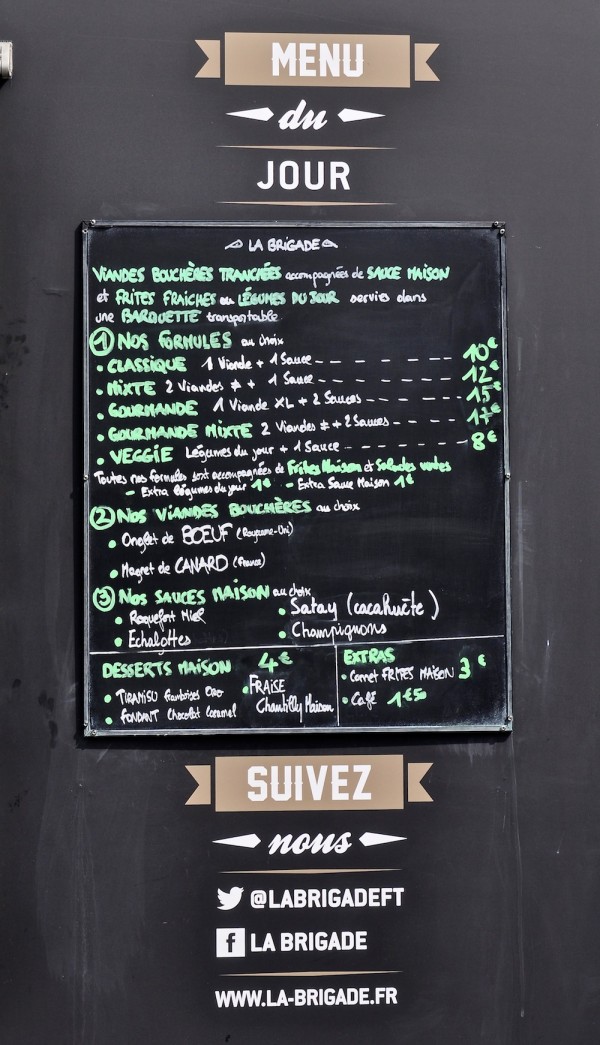 MENU
du
JOUR
LA BRIGADE
VIANDES BOUCHÈRES TRANCHÉES accompagnées de SAUCE MAISON
et FRITES FRAICHES ou LÉGUMES DU JOUR servies dans
une BARQUETTE transportable.
1 NOS FORMULES au choix
• CLASSIQUE 1 Viande + 1 Sauce - - - - - - - 10€
• MIXTE 2 Viandes ≠ + 1 Sauce - - - - - - - 12€
• GOURMANDE 1 Viande XL + 2 Sauces - - - - - 15€
• GOURMANDE MIXTE 2 Viandes ≠ + 2 Sauces - - - - 17€
• VEGGIE Légumes du jour + 1 Sauce - - - - - - 8€
Toutes nos formules sont accompagnées de Frites Maison et Salades vertes
- Extra légumes du jour 1€ - Extra Sauce Maison 1€
2 NOS VIANDES BOUCHÈRES au choix
• Onglet de BŒUF (Royaume-Uni)
• Magret de CANARD (France)
3 NOS SAUCES MAISON au choix
• Roquefort Miel
• Echalottes
• Satay (cacahuète)
• Champignons
DESSERTS MAISON 4€
• TIRAMISU framboises Oreo
• FONDANT Chocolat Caramel
• FRAISE
Chantilly Maison
EXTRAS
• Cornet FRITES MAISON 3€
• Café 1€50
SUIVEZ
nous
@LABRIGADEFT
f LA BRIGADE
WWW.LA-BRIGADE.FR